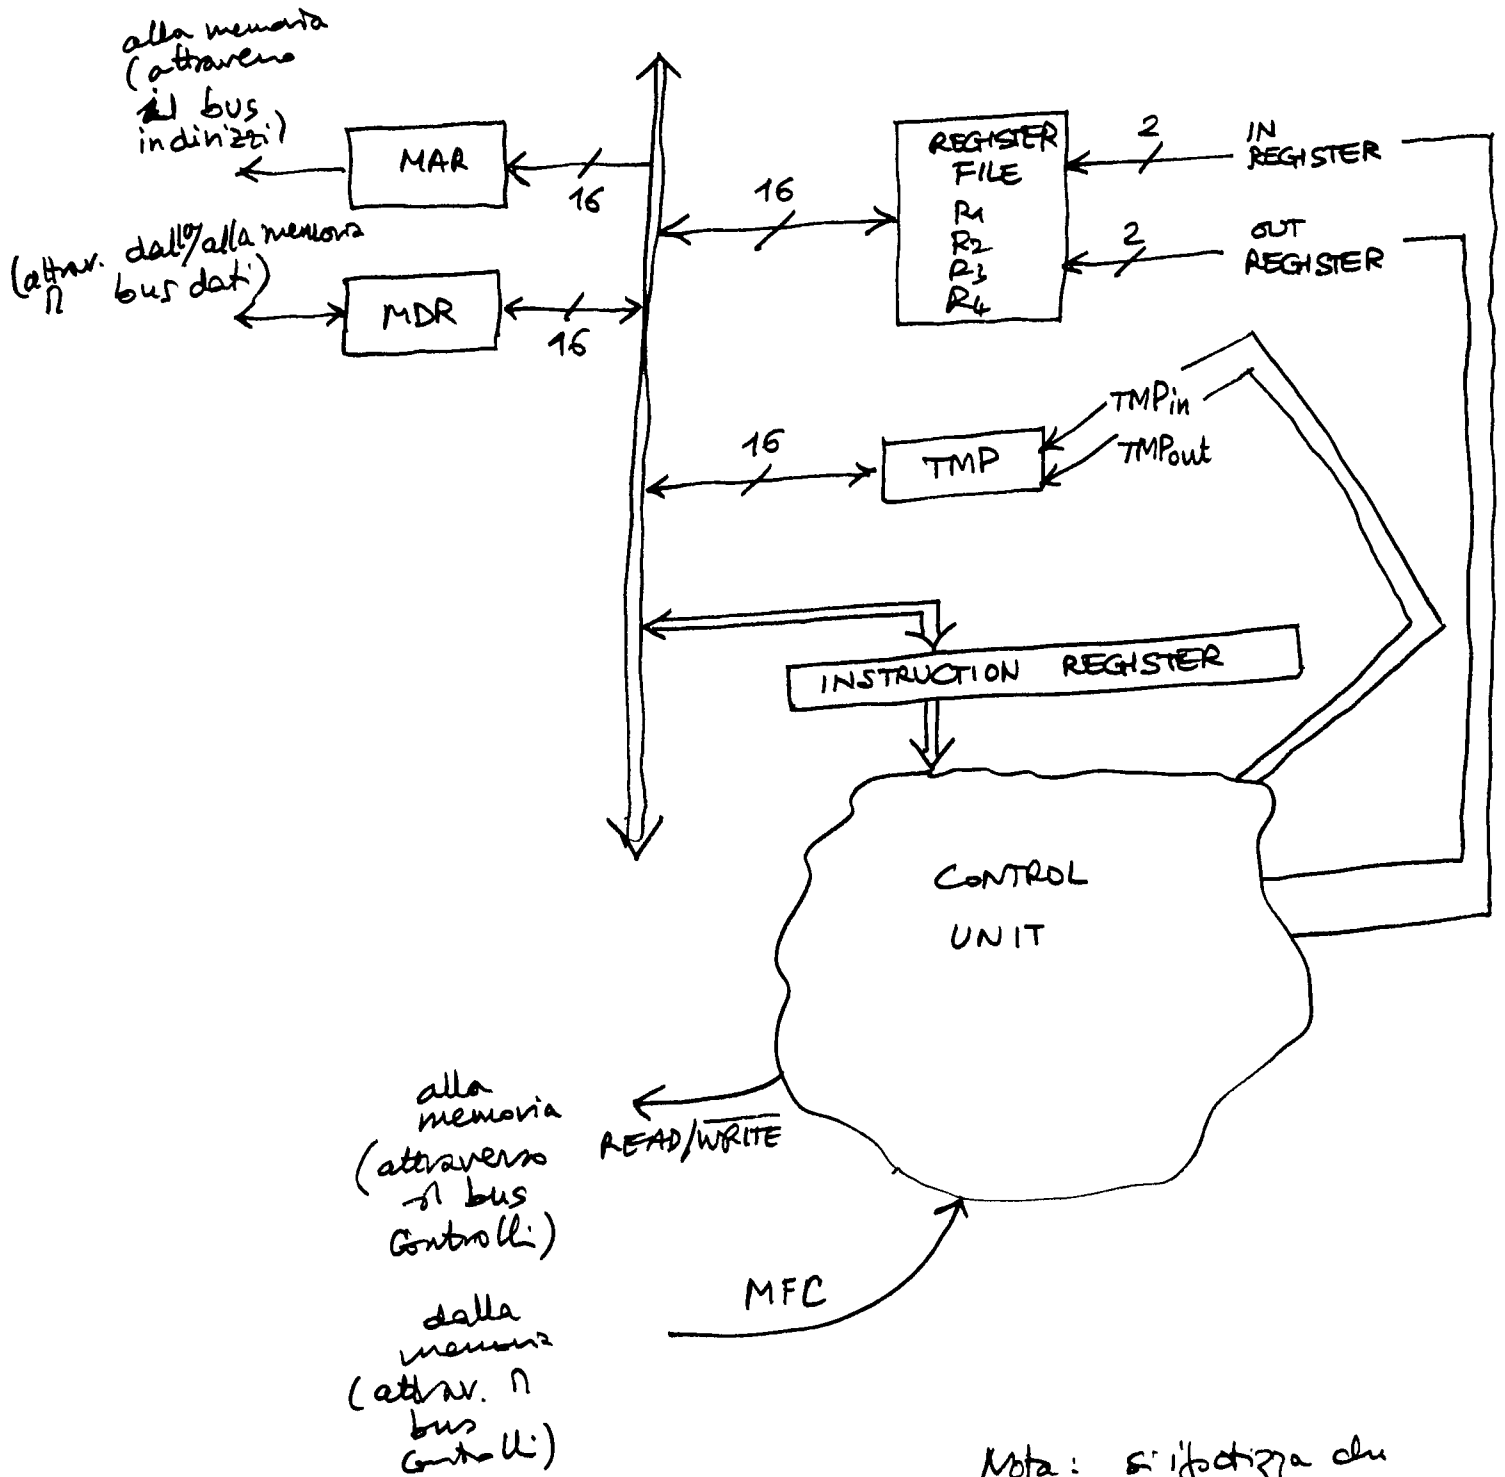 alla memoria
(attraverso
il bus
indirizzi)
MAR
16
dall'/alla memoria
(attrav. il bus dati)
MDR
16
16
REGISTER
FILE
R1
R2
R3
R4
2
IN
REGISTER
2
OUT
REGISTER
16
TMP
TMPin
TMPout
INSTRUCTION REGISTER
CONTROL
UNIT
alla
memoria
(attraverso
il bus
Controlli)
READ/WRITE
MFC
dalla
memoria
(attrav. il
bus
Controlli)
Nota: si ipotizza che